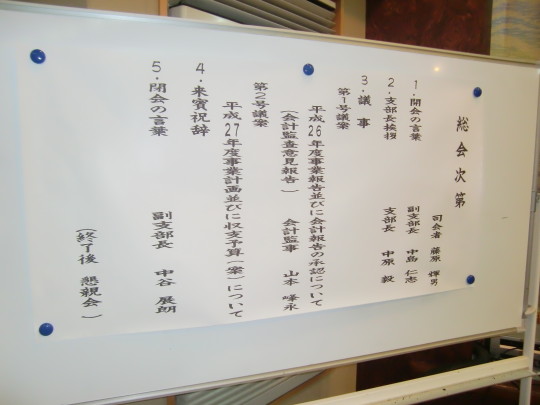 総会次第
司会者 藤原 輝男
1.開会の言葉 副支部長 中島 仁志
2.支部長挨拶 支部長 中原 毅
3.議事
第1号議案
平成26年度事業報告並びに会計報告の承認について
(会計監査意見報告) 会計監事 山本 峰永
第2号議案
平成27年度事業計画並びに収支予算(案)について
4.来賓祝辞
5.閉会の言葉 副支部長 中谷 展朗
(終了後 懇親会)